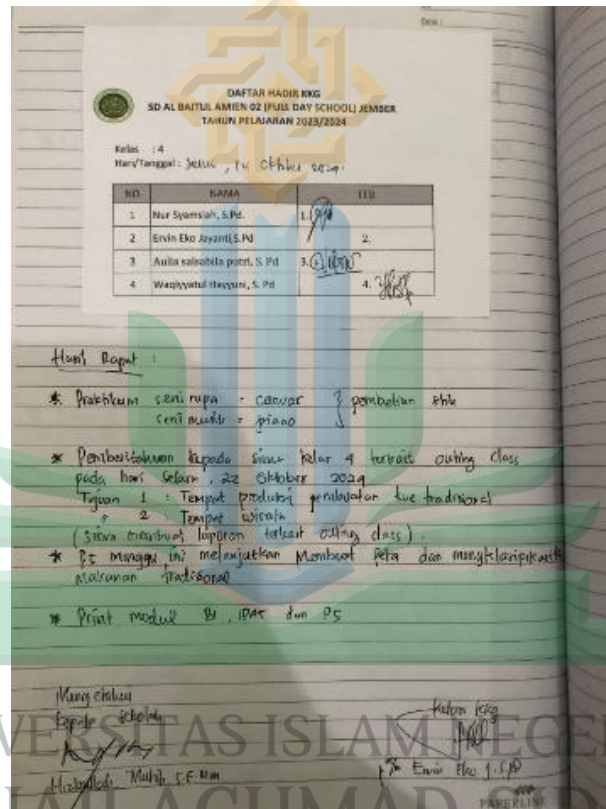 DAFTAR HADIR KKG
SD AL BAITUL AMIEN 02 (FULL DAY SCHOOL) JEMBER
TAHUN PELAJARAN 2023/2024
Kelas : 4
Hari/Tanggal : Oktober 2024
NO NAMA TTD
1 Nur Syamsiah, S.Pd. 1.
2 Ervin Eko Jayanti,S.Pd 2.
3 Aulia salsabila putri, S. Pd 3.
4 Waqiyyatul Hayyuni, S. Pd 4.
Hasil Rapat :
* Praktikum seni rupa = canvas } pembelian
seni musik = piano
* Pemberitahuan kepada siswa kelas 4 terkait outing class
pada hari Selasa, 22 Oktober 2024
Tujuan 1 : Tempat produksi pembuatan kue tradisional
" 2 : Tempat wisata
(siswa membuat laporan terkait outing class).
* P5 minggu ini melanjutkan Membuat Peta dan mengklarifikasi
makanan tradisional
* Print modul BI, IPAS dan P5
Mengetahui
Kepala sekolah
Ketua KKG
Muhib S.E MM
Ervin Eko J. S.Pd
PAPERLINE
UNIVERSITAS ISLAM NEGERI
HAJI ACHMAD SIDDIQ